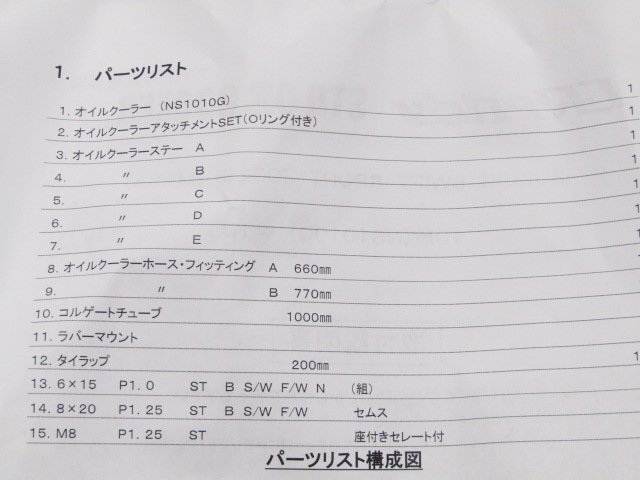 1. パーツリスト
1. オイルクーラー (NS1010G) 1
2. オイルクーラーアタッチメントSET(Oリング付き) 1
3. オイルクーラーステー A 1
4. 〃 B 1
5. 〃 C 1
6. 〃 D 1
7. 〃 E 1
8. オイルクーラーホース・フィッティング A 660㎜
9. 〃 B 770㎜
10. コルゲートチューブ 1000㎜
11. ラバーマウント
12. タイラップ 200㎜ 1
13. 6×15 P1. 0 ST B S/W F/W N (組)
14. 8×20 P1. 25 ST B S/W F/W セムス
15. M8 P1. 25 ST 座付きセレート付
パーツリスト構成図